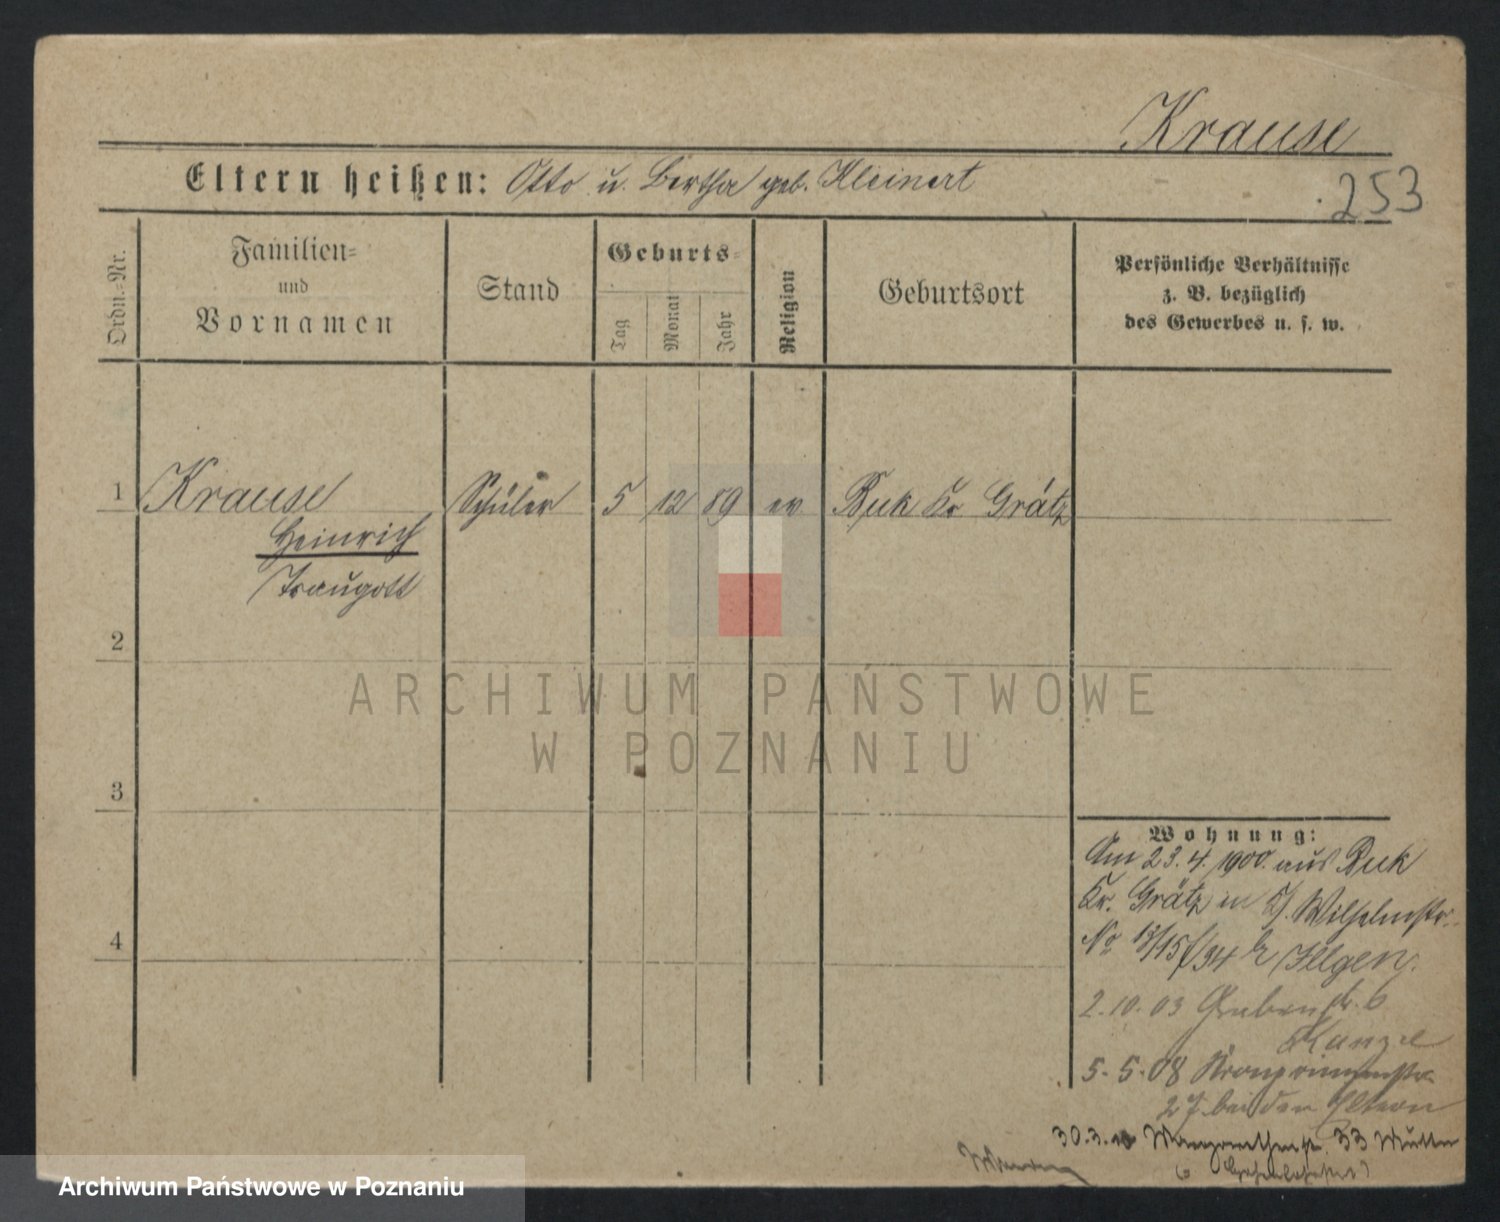 Krause
Eltern heißen: Otto u. Bertha geb. Kleinert
253
Ordn.-Nr.
Familien-
und
Vornamen
Stand
Geburts-
Tag
Monat
Jahr
Religion
Geburtsort
Persönliche Verhältnisse
z. B. bezüglich
des Gewerbes u. s. w.
1 Krause Schüler 5 12 89 ev Buk Kr Grätz
Heinrich
Traugott
2
3
4
ARCHIWUM PAŃSTWOWE
W POZNANIU
Wohnung:
Am 23.4.1900. aus Buk
Kr. Grätz in Wilhelmstr.
No Illgen.
2.10.03 Grabenstr. 6
5.5.08 Kronprinzenstr.
27 bei den Eltern
30.3. 33 Mutter
Archiwum Państwowe w Poznaniu